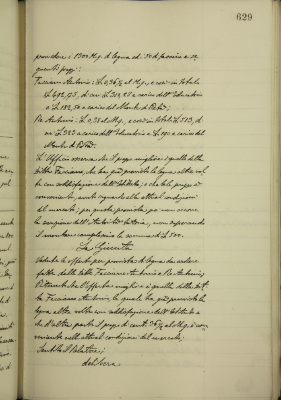 629
provvedere i 1300 Mg. di legna ed
questi prezzi:
Tacciano Antonio: £. 0,36 ¾ al Mg., e così in totale
£. 492,75, di cui £. 310, a carico dell'Educatorio
e £. 182,50 a carico del Monte di Pietà;
Re Antonio: £. 0,38 al Mg., e così in totale £. 513, di
cui £. 323 a carico dell'Educatorio e £. 190 a carico del
Monte di Pietà.
L'Ufficio osserva che il prezzo migliore è quello della
ditta Tacciano, che ha già provvista la legna altre vol-
te con soddisfazione dell'Istituto; e che tale prezzo è
conveniente, avuto riguardo alle attuali condizioni
del mercato; per questa provvista poi non occorre
la sanzione dell'Autorità tutoria, non superando
il montare complessivo la somma di £. 500.
La Giunta
Vedute le offerte per provvista di legna da ardere
fatte dalle ditte Tacciano Antonio e Re Antonio;
Ritenuto che l'offerta migliore è quella della dit-
ta Tacciano Antonio, la quale ha già provvista la
legna altre volte con soddisfazione dell'Istituto e
che d'altra parte il prezzo di cent. 36 ¾ al Mg. è con-
veniente nelle attuali condizioni del mercato;
Sentito il Relatore;
delibera